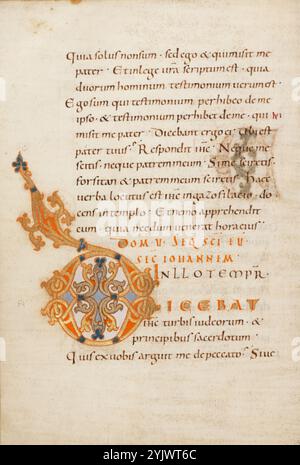 Quia solus non sum . sed ego & qui misit me
pater . Et in lege vra scriptum est . quia
duorum hominum testimonium verum est .
Ego sum qui testimonium perhibeo de me
ipso . & testimonium perhibet de me . qui
misit me pater . Dicebant ergo ei Ubi est
pater tuus ? Respondit ihc . Neque me
scitis . neque patrem meum . Si me sciretis .
forsitan & patrem meum sciretis . Haec
verba locutus est ihc in gazofilacio . do
cens in templo . Et nemo apprehendit
eum . quia necdum venerat hora eius .
DOM V SEQ SCI EU
SEC IOHANNEM
IN ILLO TEMPR
DICEBAT
ihc turbis iudeorum . &
principibus sacerdotum .
Quis ex vobis arguit me de peccato . Si ve
alamy
www.alamy.com
2YJWT6C